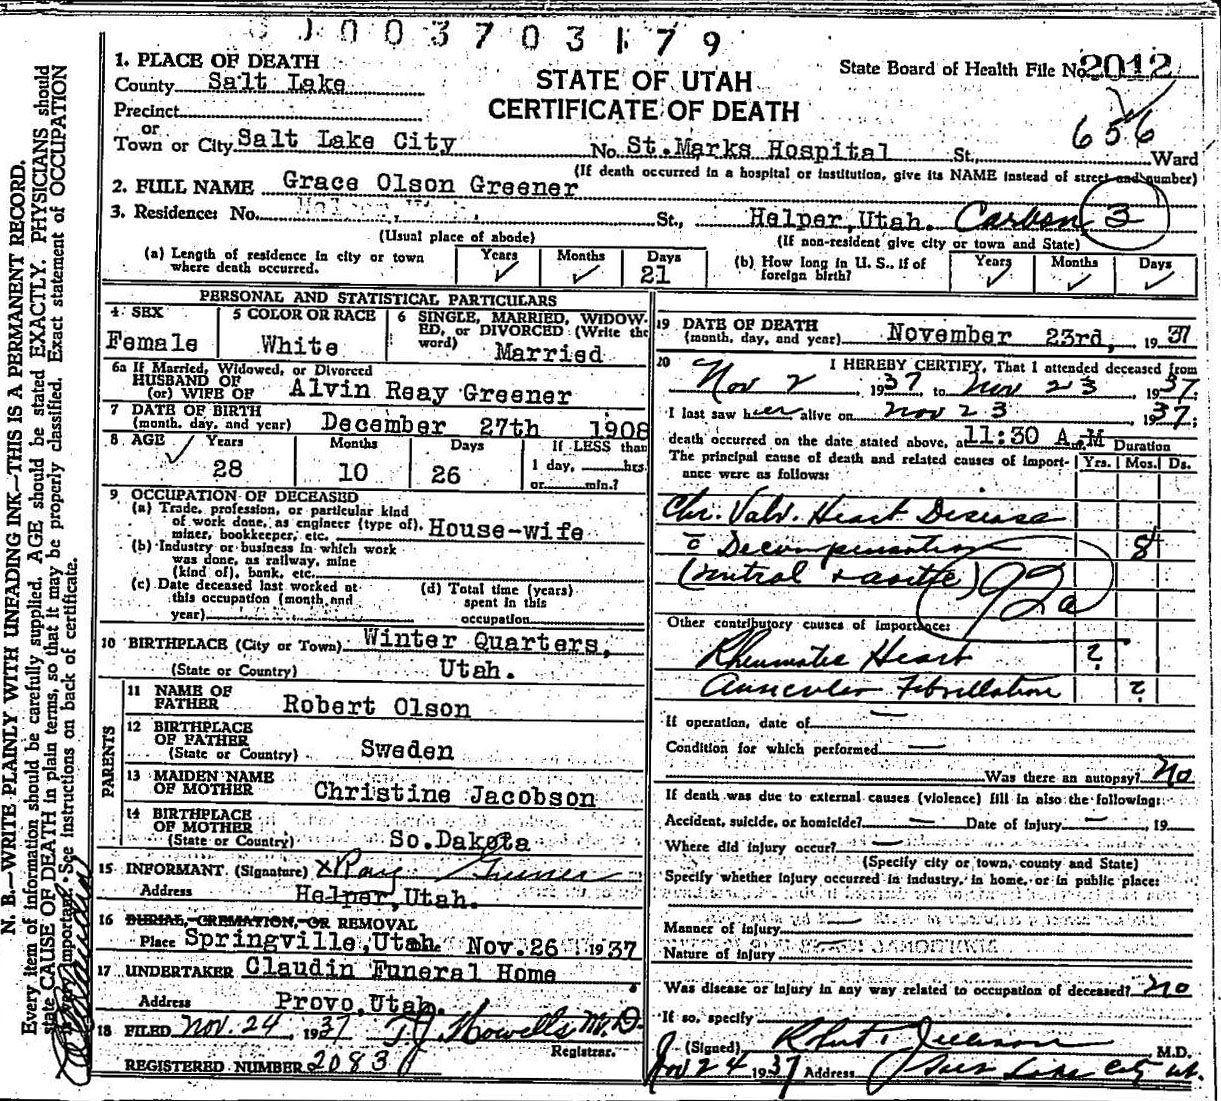 0003703179
STATE OF UTAH
CERTIFICATE OF DEATH
State Board of Health File No. 2012
656
1. PLACE OF DEATH
County Salt Lake
Precinct
or
Town or City Salt Lake City No. St.Marks Hospital St., Ward
(If death occurred in a hospital or institution, give its NAME instead of street and number)
2. FULL NAME Grace Olson Greener
3. Residence: No. St., Helper, Utah. Carbon 3
(Usual place of abode) (If non-resident give city or town and State)
(a) Length of residence in city or town where death occurred. Years ✓ Months ✓ Days 21
(b) How long in U. S., if of foreign birth? Years ✓ Months ✓ Days ✓
PERSONAL AND STATISTICAL PARTICULARS
4 SEX Female
5 COLOR OR RACE White
6 SINGLE, MARRIED, WIDOWED, or DIVORCED (Write the word) Married
6a If Married, Widowed, or Divorced
HUSBAND OF
(or) WIFE OF Alvin Reay Greener
7 DATE OF BIRTH
(month, day, and year) December 27th 1908
8 AGE ✓ Years 28 Months 10 Days 26 If LESS than 1 day, hrs. or min.?
9 OCCUPATION OF DECEASED
(a) Trade, profession, or particular kind
of work done, as engineer (type of),
miner, bookkeeper, etc. House-wife
(b) Industry or business in which work
was done, as railway, mine
(kind of), bank, etc.
(c) Date deceased last worked at
this occupation (month and
year)
(d) Total time (years)
spent in this
occupation
10 BIRTHPLACE (City or Town) Winter Quarters,
(State or Country) Utah.
PARENTS
11 NAME OF
FATHER Robert Olson
12 BIRTHPLACE
OF FATHER
(State or Country) Sweden
13 MAIDEN NAME
OF MOTHER Christine Jacobson
14 BIRTHPLACE
OF MOTHER
(State or Country) So.Dakota
15 INFORMANT (Signature) x Ray Greener
Address Helper, Utah.
16 BURIAL, CREMATION, OR REMOVAL
Place Springville, Utah. Nov. 26 1937
17 UNDERTAKER Claudin Funeral Home
Address Provo, Utah.
18 FILED Nov. 24, 1937 T.J. Howells M.D.
Registrar.
REGISTERED NUMBER 2083
19 DATE OF DEATH
(month, day, and year) November 23rd, 1937
20 I HEREBY CERTIFY, That I attended deceased from
Nov 2, 1937 to Nov 23, 1937.
I last saw her alive on Nov 23, 1937;
death occurred on the date stated above, at 11:30 A.M Duration
The principal cause of death and related causes of importance were as follows: Yrs. Mos. Ds.
Chr. Valv. Heart Disease
c̄ Decompensation 8
(mitral + aortic) 92a
Other contributory causes of importance:
Rheumatic Heart ?
Auricular Fibrillation ?
If operation, date of —
Condition for which performed —
Was there an autopsy? No
If death was due to external causes (violence) fill in also the following:
Accident, suicide, or homicide? — Date of injury —, 19
Where did injury occur? —
(Specify city or town, county and State)
Specify whether injury occurred in industry, in home, or in public place:
Manner of injury
Nature of injury
Was disease or injury in any way related to occupation of deceased? No
If so, specify
(Signed) M.D.
Nov 24 1937 Address Salt Lake City Ut.
N. B.—WRITE PLAINLY WITH UNFADING INK—THIS IS A PERMANENT RECORD.
Every item of information should be carefully supplied. AGE should be stated EXACTLY. PHYSICIANS should
state CAUSE OF DEATH in plain terms, so that it may be properly classified. Exact statement of OCCUPATION
important. See instructions on back of certificate.